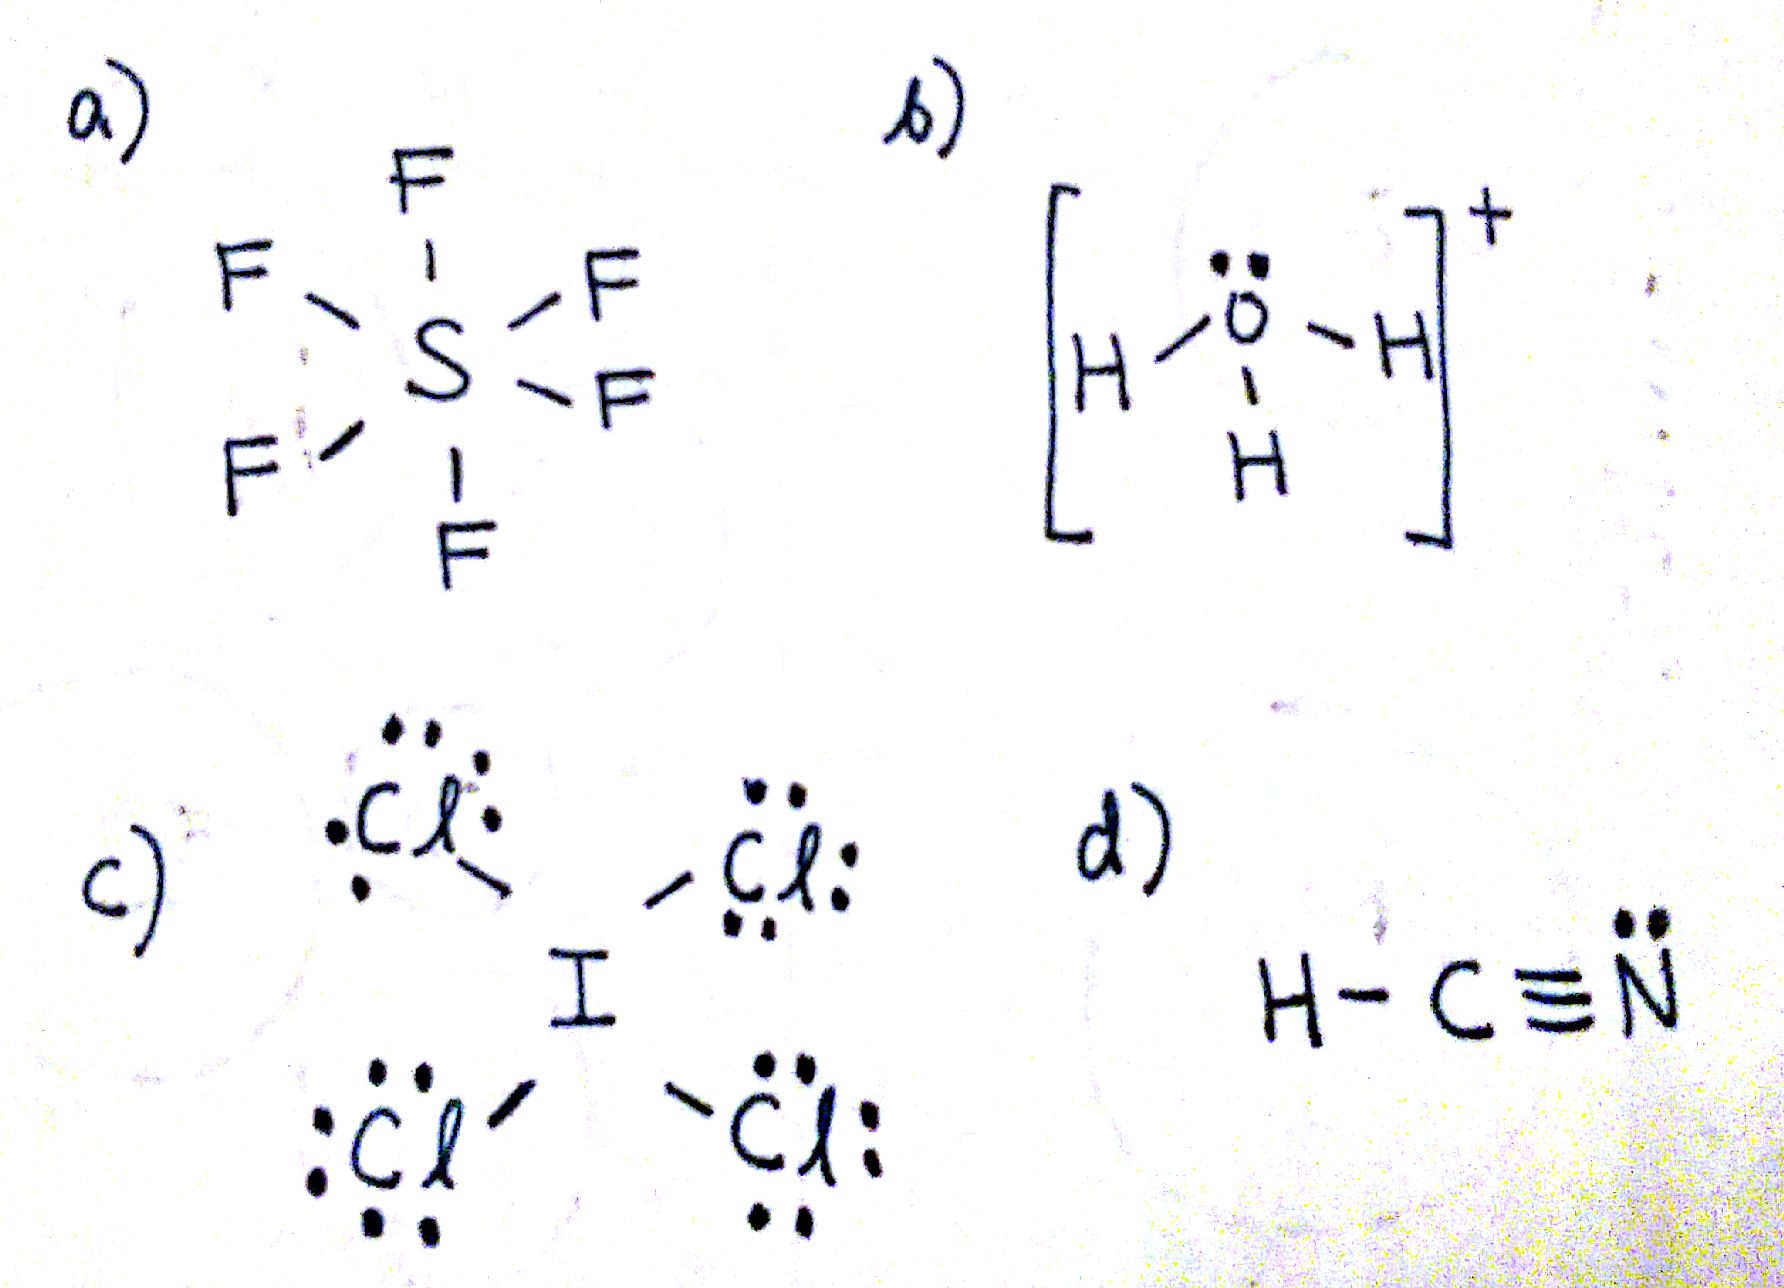 a)
F
F F
S
F F
F
b)
[H - O - H]+
H
c)
Cl Cl
I
Cl Cl
d)
H - C ≡ N